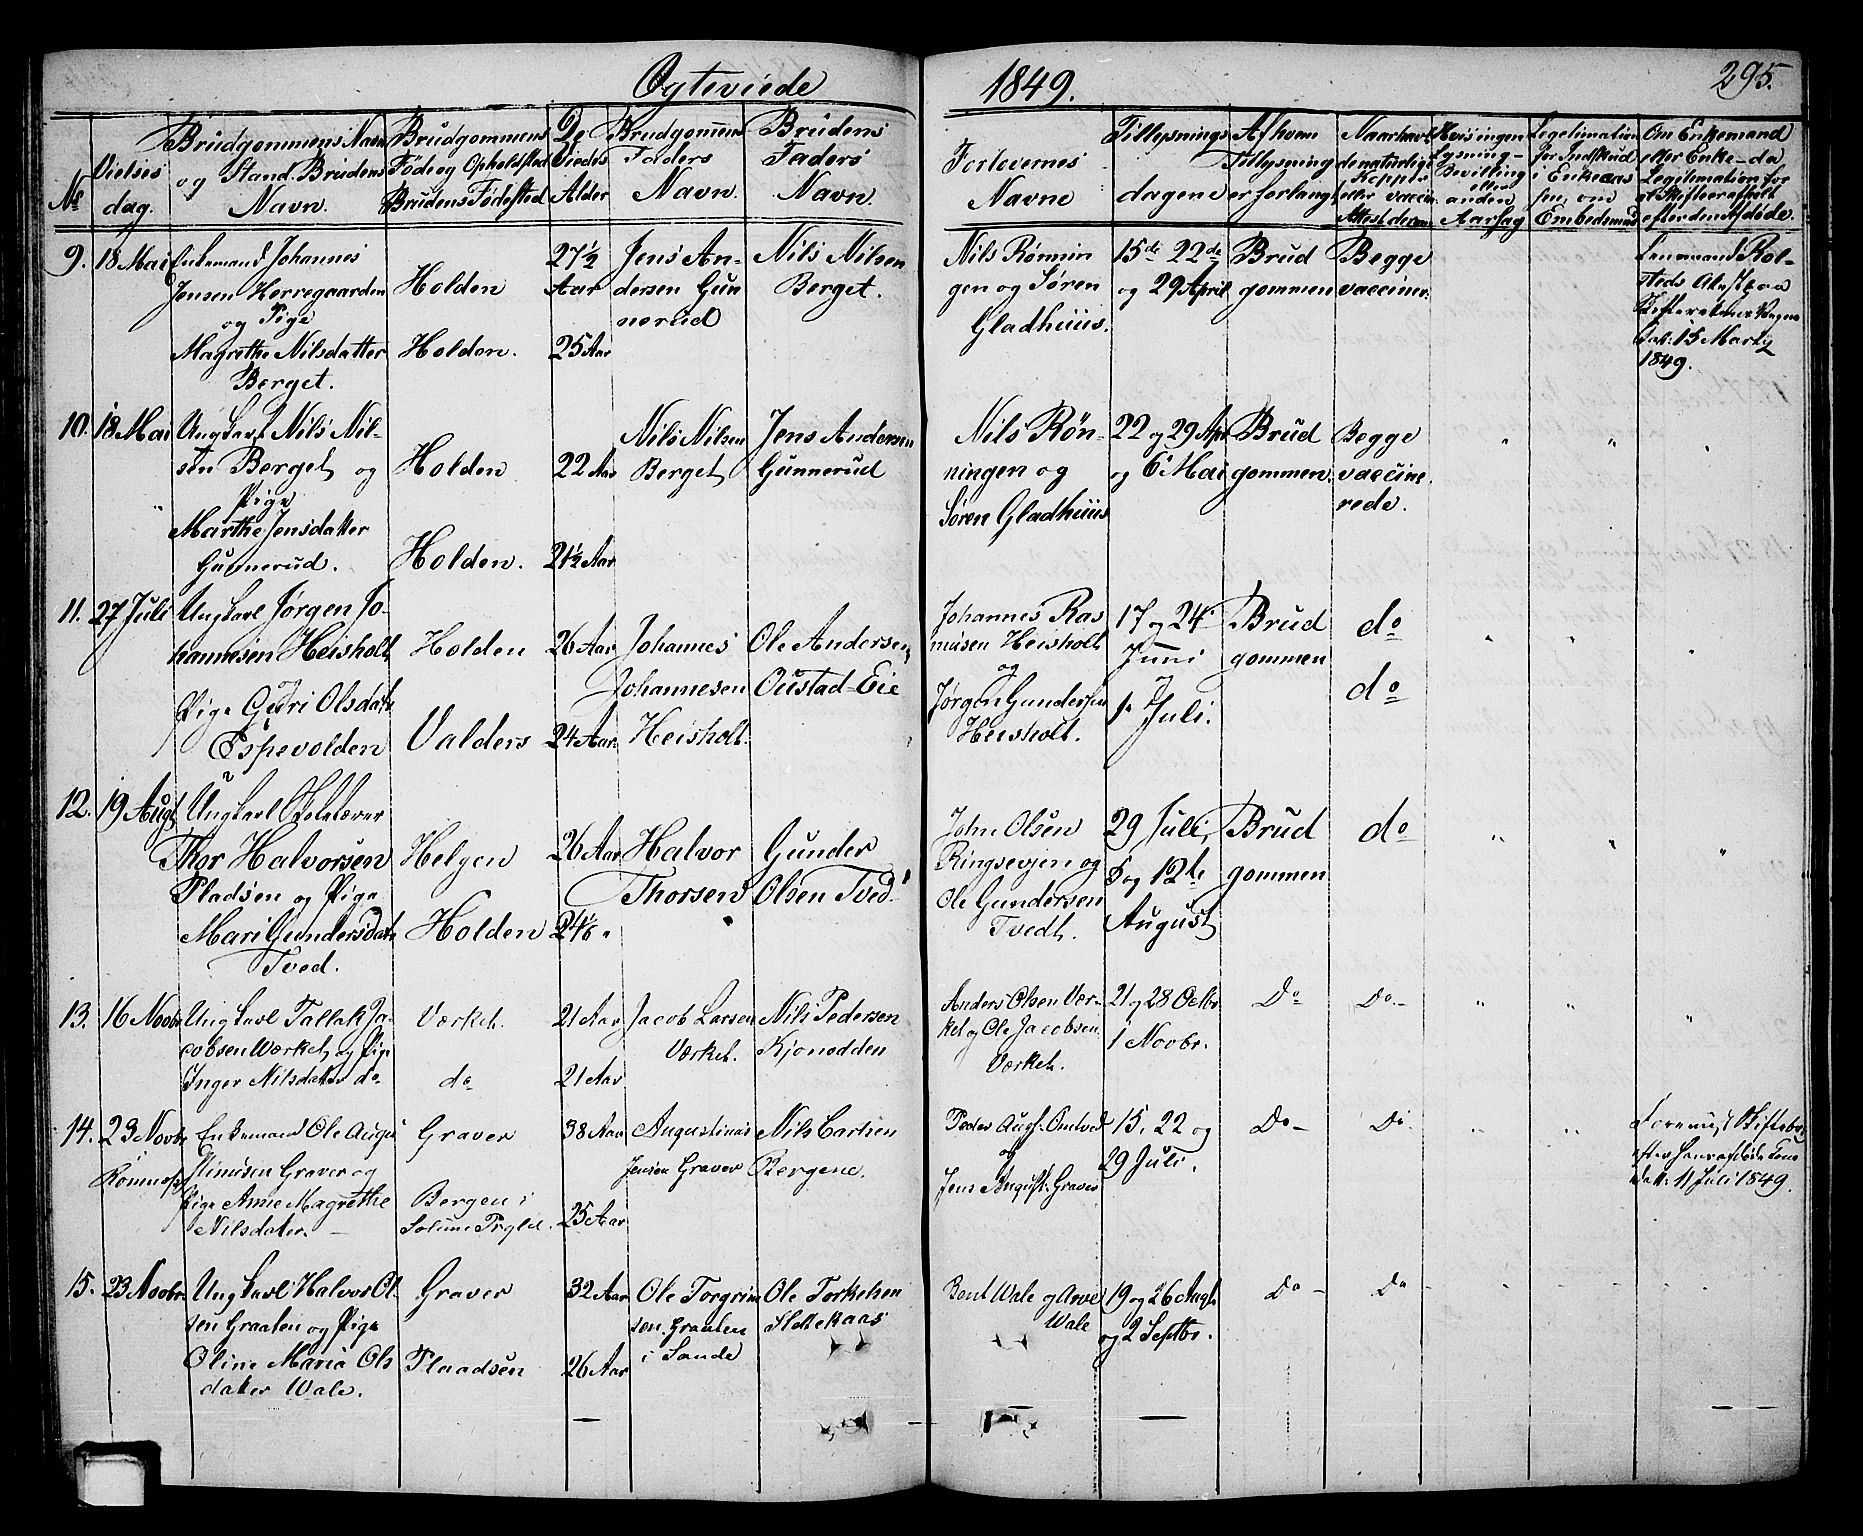 Ogteviede
1849.
295.
No
Vielses
dag.
Brudgommens Navn
og Stand. Brudens
Navn.
Brudgommens
Føde og Opholdsted
Brudens Fødested
De
Viedes
Alder
Brudgommens
Faders
Navn.
Brudens
Faders
Navn.
Forlovernes
Navne
Tillysnings
dagene
Af hvem
Tillysning
er forlangt
Naar havt
de naturlige
Kopper
eller vaccin
Attest derom
Hvis ingen
Lysning
Bevilling
eller
anden
Aarsag
Legitimation
for Indskud
i Enkecas
sen, om
Embedsmand
Om Enkemand
eller Enke da
Legitimation for
at Skifte er afholdt
efter den Afdøde.
9. 18 Mai
Enkemand Johannes
Jensen Herregaarden
og Pige
Magrethe Nilsdatter
Berget.
Holden
Holden.
27½
Aar
25 Aar
Jens An-
dersen Gun
nerud
Nils Nilsen
Berget.
Nils Rønnin
gen og Søren
Gladhuus.
15de 22de
og 29 April
Brud
gommen
Begge
vacciner.
15 Marty
1849.
10. 18 Mai
Ungkarl Nils Nil-
sen Berget og
Pige
Marthe Jensdatter
Gunnerud.
Holden
Holden.
22 Aar
21½ Aar
Nils Nilsen
Berget
Jens Andersen
Gunnerud
Nils Røn-
ningen og
Søren Gladhuus
22 og 29 Apr
og 6 Mai
Brud
gommen.
Begge
vaccine
rede.
" " "
11. 27 Juli
Ungkarl Jørgen Jo-
hannesen Heisholt
og
Pige Guri Olsdatr
Espevolden
Holden
Valders
26 Aar
24 Aar
Johannes
Johannesen
Heisholt.
Ole Andersen
Oustad-Eie
Johannes Ras
musen Heisholt
og
Jørgen Gundersen
Heisholt.
17 og 24
Juni
1. Juli.
Brud
gommen
do
do
" " "
12. 19 Augt
Ungkarl Skolelærer
Thor Halvorsen
Pladsen og Pige
Mari Gundersdatr
Tved.
Helgen
Holden
26 Aar
Halvor
Thorsen
Gunder
Olsen Tved.
John Olsen
Ringsevjen og
Ole Gundersen
Tvedt.
29 Juli,
5 og 12te
August
Brud
gommen
do
" " "
13. 16 Novbr
Ungkarl Tallak Ja-
cobsen Værket og Pige
Inger Nilsdatter do
Værket.
do
21 Aar
21 Aar
Jacob Larsen
Værket.
Nils Pedersen
Anders Olsen Vær-
ket og Ole Jacobsen
Værket.
21 og 28 Octbr
1 Novbr.
Do
Do
" " "
14. 23 Novbr
Enkemand Ole Augu
stinusen Graver og
Pige Anne Magrethe
Nilsdatter.
Graver
Bergen i
Solum Prgld.
38 Aar
25 Aar
Augustinus
Jensen Graver
Nils Carlsen
Bergene.
Peder Aug.
og
Jens August. Graver
15, 22 og
29 Juli.
Do
Do
" "
11 Juli 1849.
15. 23 Novbr.
Ungkarl Halvor Ol-
sen Graaten og Pige
Oline Maria Ols
datter Wale.
Graver
Plaadsen
32 Aar
26 Aar
Ole Torgrim
sen Graaten
i Sande
Ole Torkelsen
Bent Wale og Arve
Wale
19 og 26 Augt
og 2 Septbr.
Do
Do